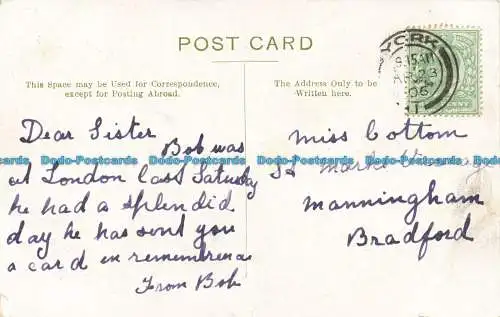 POST CARD
This Space may be Used for Correspondence,
except for Posting Abroad.
The Address Only to be
Written here.
YORK
9.15 AM
05
Dear Sister
Bob was
at London last Saturday
he had a splendid
day he has sent you
a card in remembrance
From Bob
Miss Cottom
St Marks
Manningham
Bradford
Dodo-Postcards Dodo-Postcards Dodo-Postcards Dodo-Postcards Dodo-Postcards